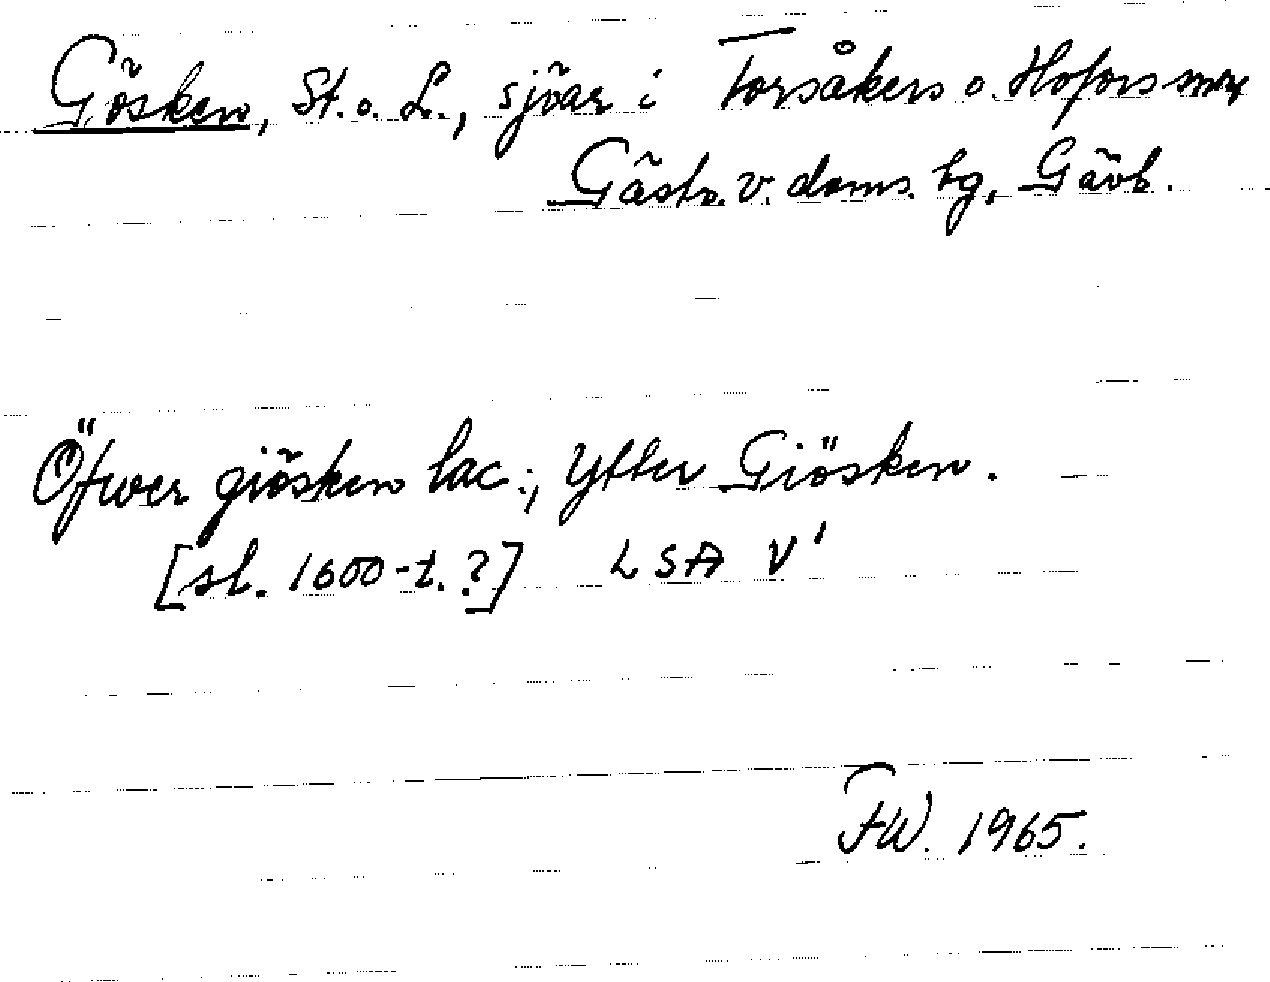 Gösken, St. o. L., sjöar i Torsåkers o. Hofors snr
Gästr. v. doms. tg, Gävl.
Öfwer giösken lac:, Ytter Giösken.
[sl. 1600-t.?] LSA V¹
FW. 1965.